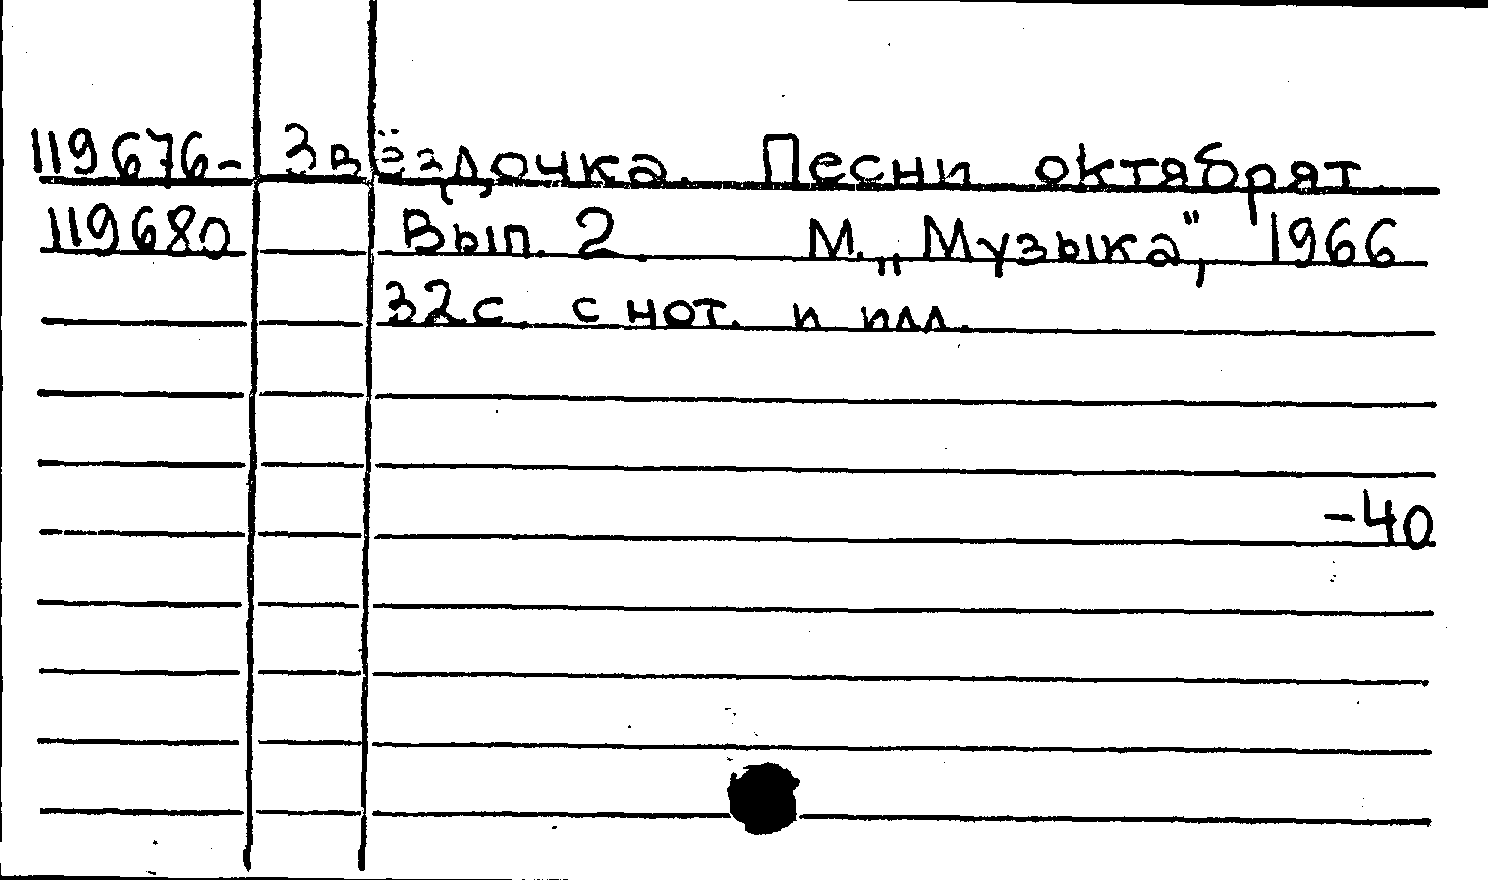 119676- Звёздочка. Песни октябрят.
119680 Вып. 2. М., „Музыка", 1966
32 с. с нот. и илл.
-40